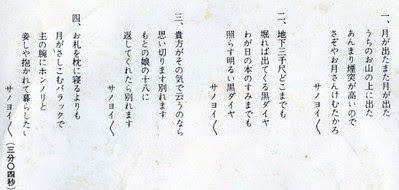 一、月が出たまた月が出た
うちのお山の上に出た
あんまり煙突が高いので
さぞやお月さんけむたかろ
サノヨイ〱
二、地下三千尺どこまでも
堀れば出てくる黒ダイヤ
わが日の本のすみまでも
照らす明るい黒ダイヤ
サノヨイ〱
三、貴方がその気で云うのなら
思い切ります別れます
もとの娘の十八に
返してくれたら別れます
サノヨイ〱
四、お札を枕に寝るよりも
月がさしこむバラックで
主の腕にホンノリと
妾しや抱かれて暮らしたい
サノヨイ〱
(三分〇四秒)